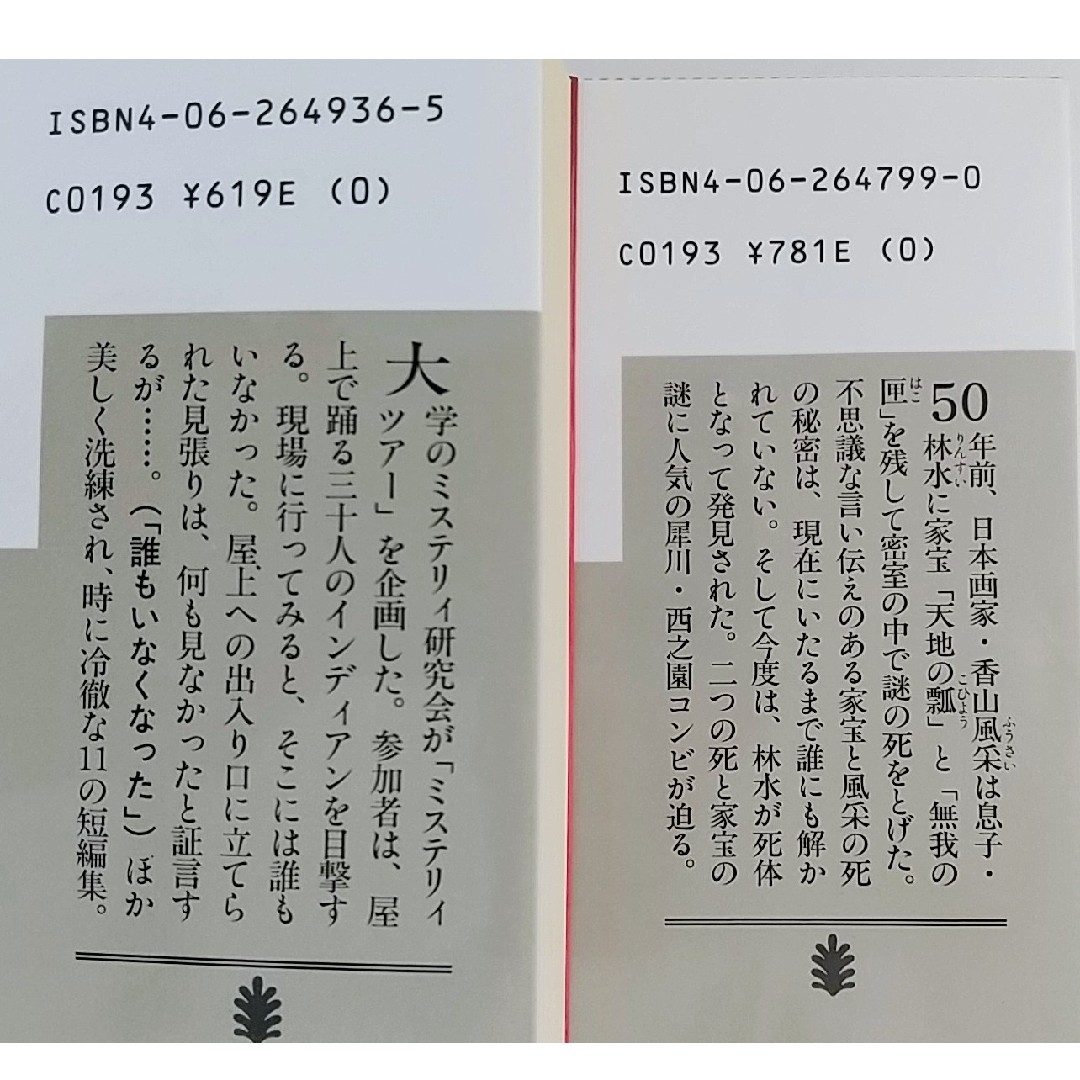 ISBN4-06-264936-5
C0193 ¥619E (0)
大学のミステリィ研究会が「ミステリィ
ツアー」を企画した。参加者は、屋
上で踊る三十人のインディアンを目撃す
る。現場に行ってみると、そこには誰も
いなかった。屋上への出入り口に立てら
れた見張りは、何も見なかったと証言す
るが……。(「誰もいなくなった」)ほか
美しく洗練され、時に冷徹な11の短編集。
ISBN4-06-264799-0
C0193 ¥781E (0)
50年前、日本画家・香山風采は息子・
ふうさい
林水に家宝「天地の瓢」と「無我の
りんすい
こひょう
匣」を残して密室の中で謎の死をとげた。
はこ
不思議な言い伝えのある家宝と風采の死
の秘密は、現在にいたるまで誰にも解か
れていない。そして今度は、林水が死体
となって発見された。二つの死と家宝の
謎に人気の犀川・西之園コンビが迫る。